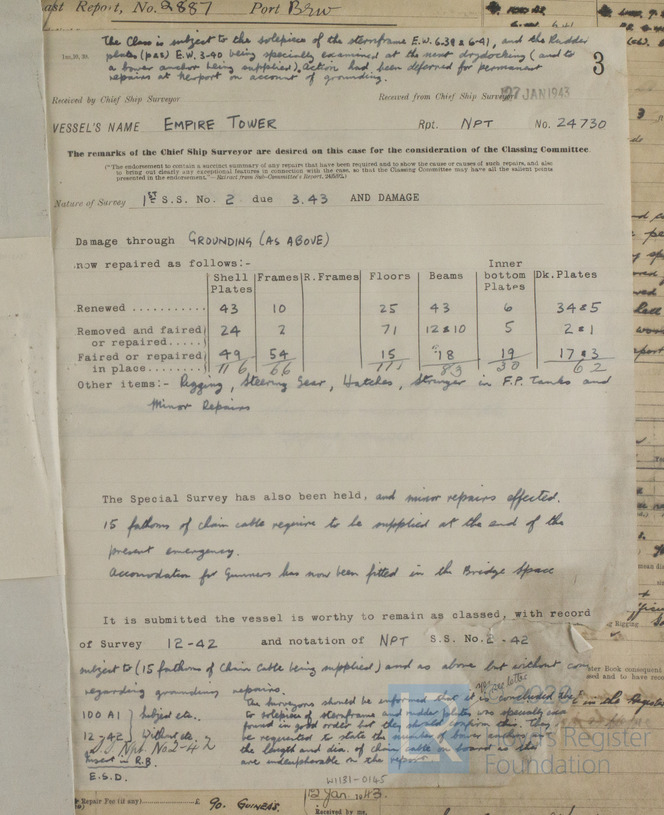 ast Report, No. 2887 Port Brw
The Class is subject to the solepiece of the sternframe E.W. 6.39 & 6-41), and the Rudder
plates (p&s) E.W. 3-40 being specially examined at the next drydocking (and to
a bower anchor being supplied). Action had been deferred for permanent
repairs at Newport on account of grounding.
3
Received by Chief Ship Surveyor Received from Chief Ship Surveyor 27 JAN 1943
VESSEL'S NAME EMPIRE TOWER Rpt. NPT No. 24730
The remarks of the Chief Ship Surveyor are desired on this case for the consideration of the Classing Committee.
(*The endorsement to contain a succinct summary of any repairs that have been required and to show the cause or causes of such repairs, and also
to bring out clearly any exceptional features in connection with the case, so that the Classing Committee may have all the salient points
presented in the endorsement."—Extract from Sub-Committee's Report,
Nature of Survey 1ST S.S. No. 2 due 3.43 AND DAMAGE
Damage through GROUNDING (AS ABOVE)
now repaired as follows:-
Shell Plates Frames R.Frames Floors Beams Inner bottom Plates Dk.Plates
Renewed ........... 43 10 25 43 6 34 & 5
Removed and faired or repaired..... 24 2 71 12 & 10 5 2 & 1
Faired or repaired in place...... 49 54 15 18 19 17 & 3
116 66 111 83 30 62
Other items:- Rigging, Steering Gear, Hatches, Stringer in F.P. Tanks and
Minor Repairs
The Special Survey has also been held, and minor repairs effected.
15 fathoms of chain cable require to be supplied at the end of the
present emergency.
Accomodation for Gunners has now been fitted in the Bridge Space
It is submitted the vessel is worthy to remain as classed, with record
of Survey 12-42 and notation of NPT S.S. No. 2 - 42
subject to (15 fathoms of Chain Cable being supplied) and as above but without
regarding grounding repairs.
see letter
The Surveyors should be informed that it is concluded the
solepiece of sternframe and rudder plates was specially
found in good order but they should confirm this. They
be requested to state the number of bower anchors
the length and dia. of chain cable on board as the
are undecipherable on the report.
100 A1 Subject etc..
12-42 Without etc.
S.S. Npt. No 2-42
in R.B.
E.S.D.
W1131-0145
Lloyd's Register
Foundation
Repair Fee (if any) £ 90. GUINEAS.
12 Jan. 1943.
Received by me,